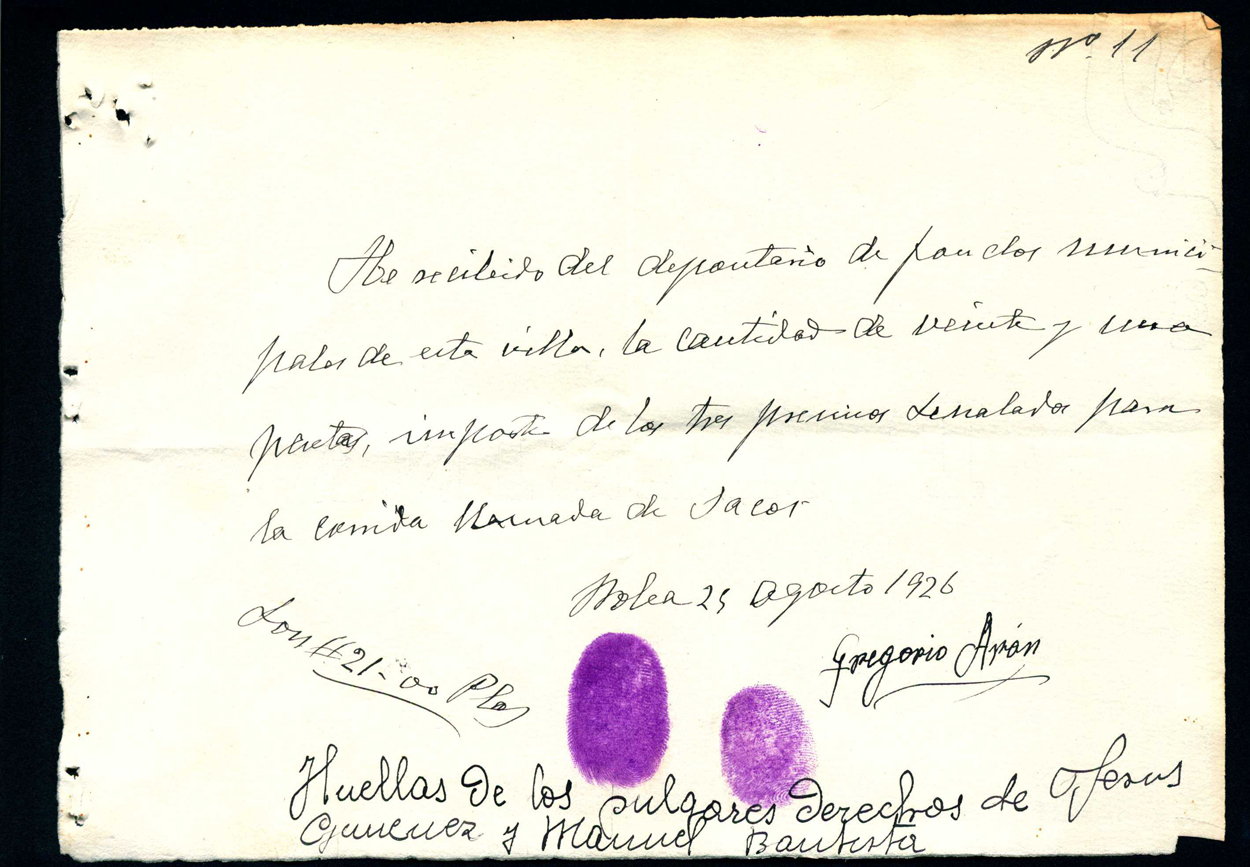 Nº 11
He recibido del depositario de fondos munici-
pales de esta villa, la cantidad de veinte y una
pesetas, importe de los tres premios señalados para
la corrida llamada de Sacos
Bolea 25 agosto 1926
Son #21-00 Ptas
Gregorio Arán
Huellas de los pulgares derechos de Jesus
Gimenez y Manuel Bautista